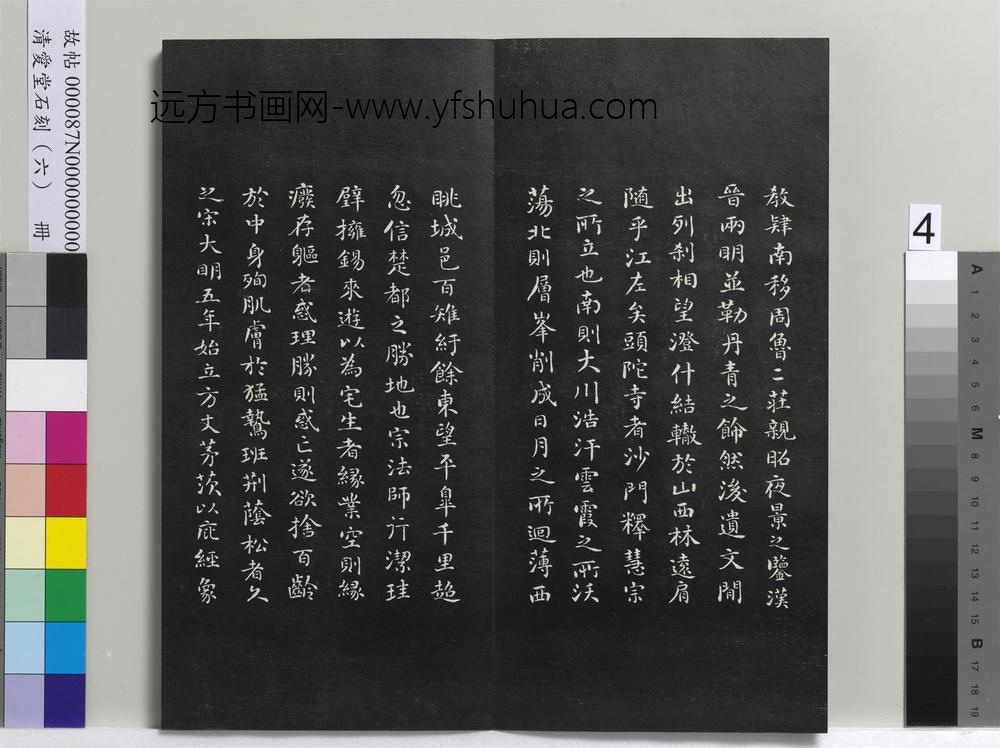 教肄南移周魯二莊親昭夜景之鑒漢
晉兩明並勒丹青之飾然後遺文閒
出列刹相望澄什結轍於山西林遠肩
随乎江左矣頭陀寺者沙門釋慧宗
之所立也南則大川浩汗雲霞之所沃
蕩北則層峯削成日月之所迴薄西
眺城邑百雉紆餘東望平皐千里超
忽信楚都之勝地也宗法師行潔珪
璧擁錫來遊以為宅生者緣業空則緣
廢存軀者惑理勝則惑亡遂欲捨百齡
於中身殉肌膚於猛鷙班荆蔭松者久
之宋大明五年始立方丈茅茨以庇經象
远方书画网-www.yfshuhua.com
故帖 000087N000000000
清愛堂石刻（六） 冊
4
A 1 2 3 4 5 6 M 8 9 10 11 12 13 14 15 B 17 18 19